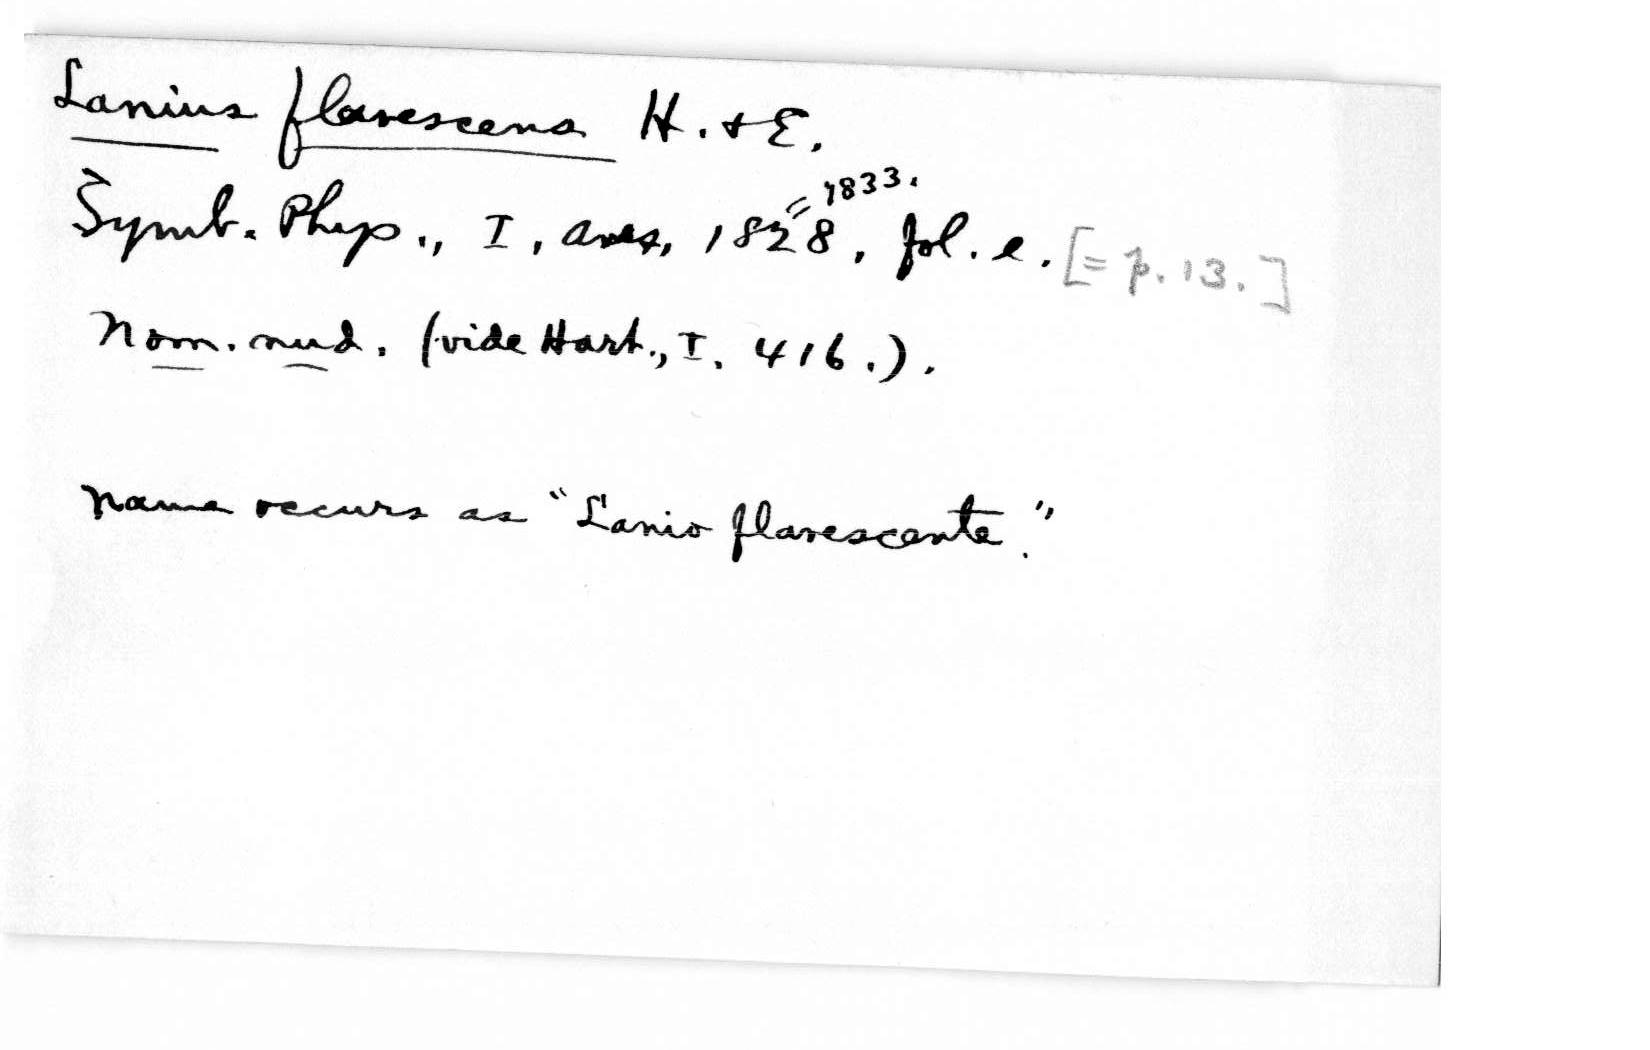 Lanius flavescens H. & E.
Symb. Phys., I, Aves, 1828, = 1833. fol. e. [= p. 13.]
Nom. nud. (vide Hart., I. 416.).
Name occurs as "Lanio flavescente."